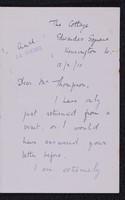 The Cottage
Edwardes Square
Kensington W.
Dear Mr Thompson,
I have only
just returned from a
visit, or I would
have answered your
letter before.
I am extremely